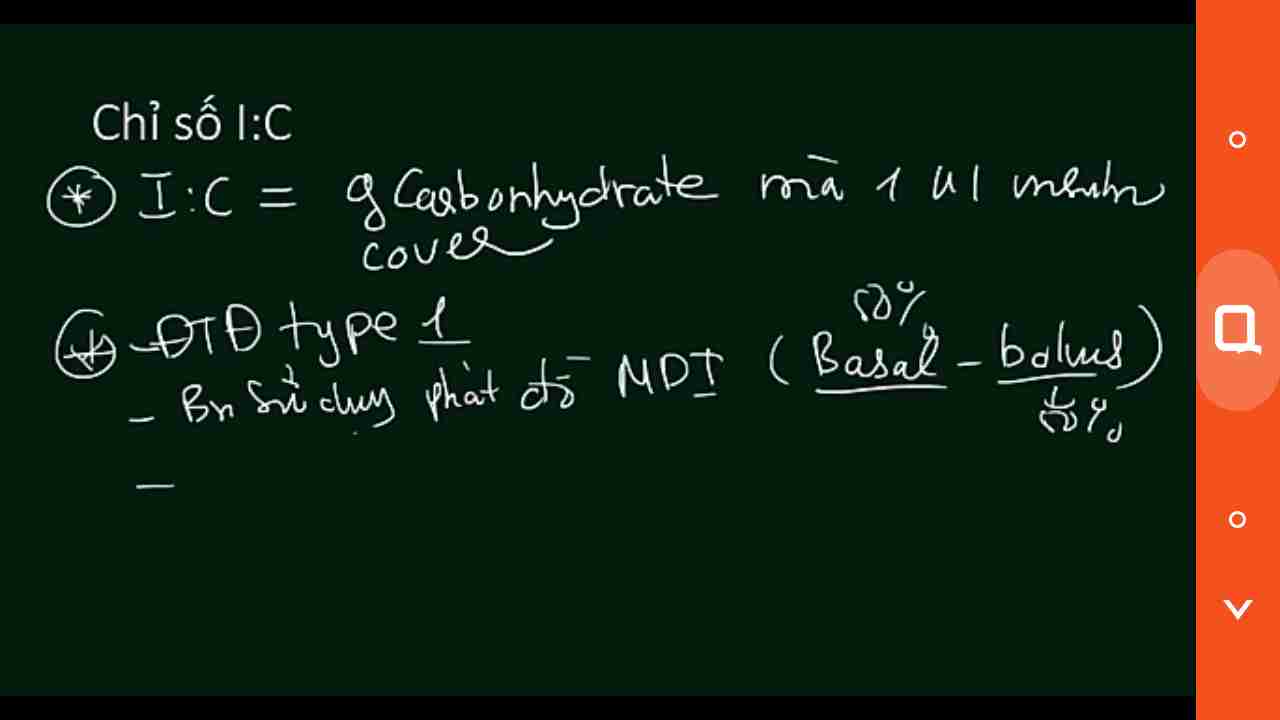 Chỉ số I:C
I:C = g Carbonhydrate mà 1 UI insulin
cover
- ĐTĐ type 1
- Bn sử dụng phát đồ MDI (Basal - bolus)
50%
50%